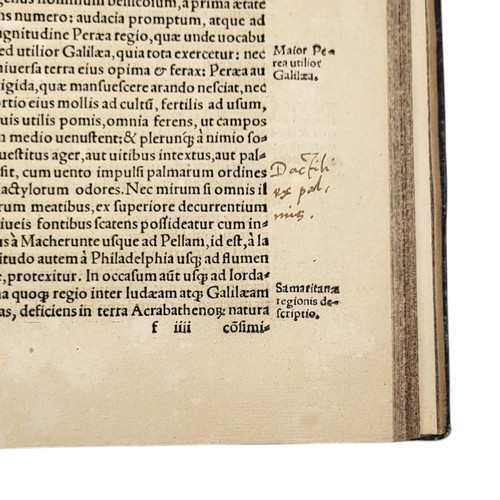 genus hominum bellicosum, a prima ætate
ns numero: audacia promptum, atque ad
gnitudine Peræa regio, quæ unde uocabu
ed utilior Galilæa, quia tota exercetur: nec
niuersa terra eius opima & ferax: Peræa au
igida, quæ mansuescere arando nesciat, nec
ortio eius mollis ad cultũ, fertilis ad usum,
uis utilis pomis, omnia ferens, ut campos
n medio uenustent: & plerunq; à nimio so-
uestitus ager, aut uitibus intextus, aut pal-
sit, cum uento impulsi palmarum ordines
dactylorum odores. Nec mirum si omnis il
rum meatibus, ex superiore decurrentium
niueis fontibus scatens possideatur cum in-
us à Macherunte usque ad Pellam, id est, à la
titudo autem à Philadelphia usq; ad flumen
e, protexitur. In occasum aũt usq; ad Iorda-
na quoq; regio inter Iudæam atq; Galilæam
as, deficiens in terra Acrabathenoꝝ: natura
f iiii cõsimi-
Maior Pe-
rea utilior
Galilæa.
Dactili
ex pal,
mis.
Samaritanæ
regionis de-
scriptio.